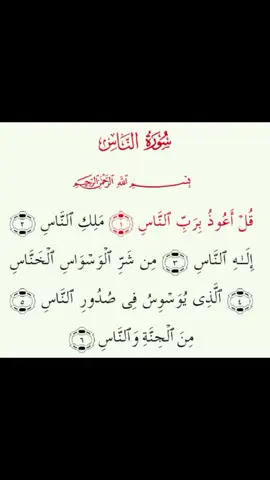 سُورَةُ النَّاسِ
بِسْمِ اللَّهِ الرَّحْمَٰنِ الرَّحِيمِ
قُلْ أَعُوذُ بِرَبِّ ٱلنَّاسِ ١ مَلِكِ ٱلنَّاسِ ٢
إِلَـٰهِ ٱلنَّاسِ ٣ مِن شَرِّ ٱلْوَسْوَاسِ ٱلْخَنَّاسِ
٤ ٱلَّذِى يُوَسْوِسُ فِى صُدُورِ ٱلنَّاسِ ٥
مِنَ ٱلْجِنَّةِ وَٱلنَّاسِ ٦